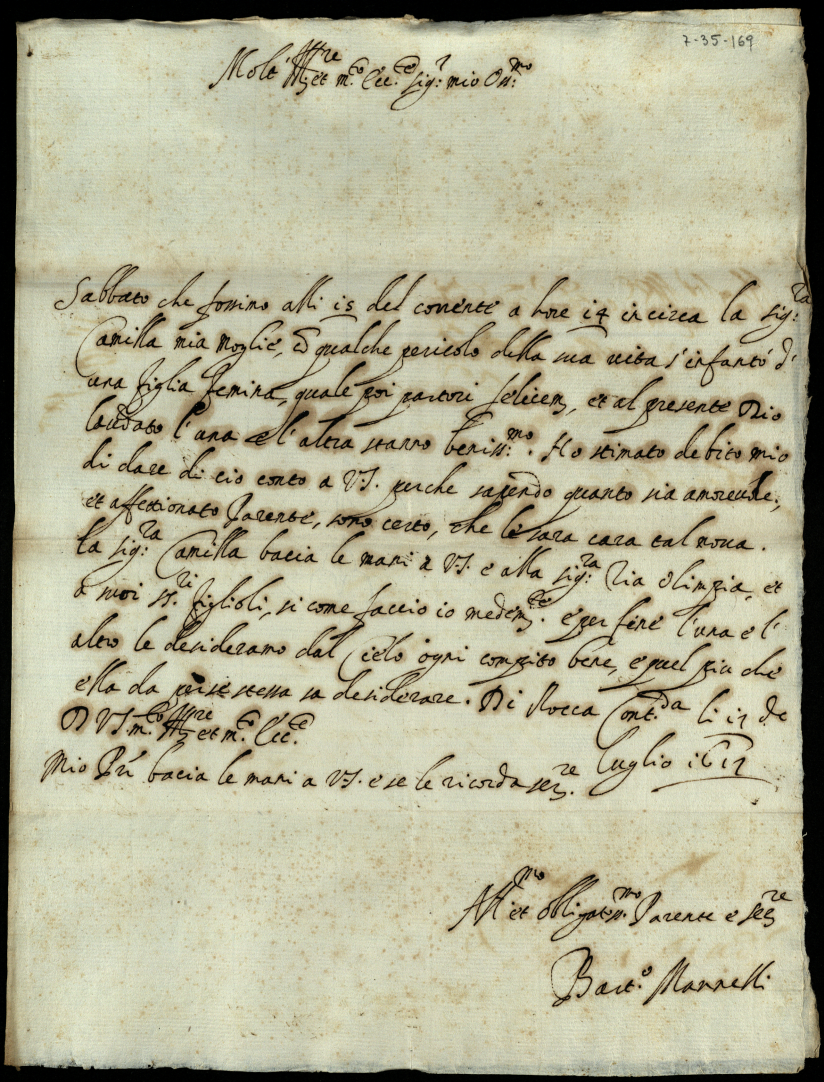 7-35-169
Molt' Ill.re et m.to Ecc.te Sig.r mio Oss.mo
Sabbato che fossimo alli 15 del corrente a hore 14 in circa la Sig.ra
Camilla mia moglie, cō qualche pericolo della sua vita s'infantó d'
una figlia femina, quale poi partorì felicem, et al presente Dio
laudato l'una e l'altra stanno beniss.mo. Ho stimato debito mio
di dare di cio conto a V.S. perche sapendo quanto sia amorevole,
et affettionato Parente, sono certo, che le sara cara tal nova.
La Sig.ra Camilla bacia le mani a V.S. e alla Sig.ra Tia Olimpia, et
a suoi SS.ri figlioli, si come faccio io medem.te. e per fine l'una e l'
altro le desideramo dal Cielo ogni compito bene, e quel piu che
ella da per se stessa sa desiderare. Di Rocca Cont.da li 17 de
D V.S. m.to Ill.re et m.to Ecc.te
Luglio 1617
Mio P̃re bacia le mani a V.S. e se le ricorda ser.re
Aff.mo et obligatiss.mo Parente e ser.re
Bart.o Mannelli